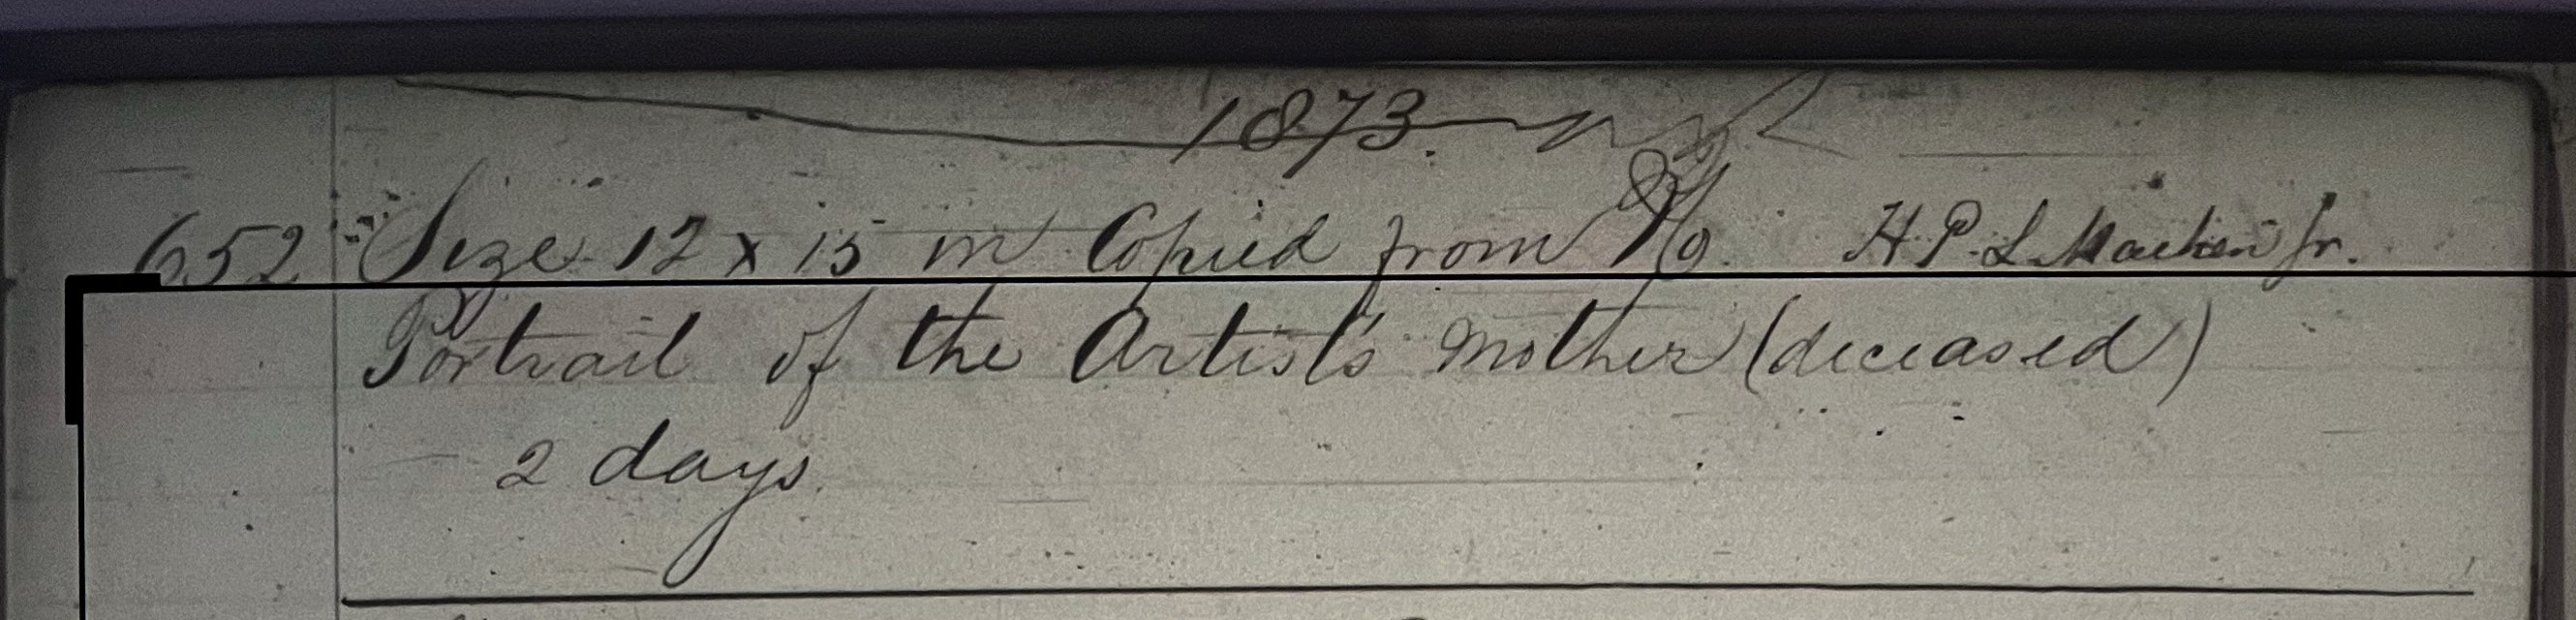 1873.
652 Size 12 x 15 in Copied from Pho. H. P. L. Machen Jr.
Portrait of the Artist's Mother (deceased)
2 days.